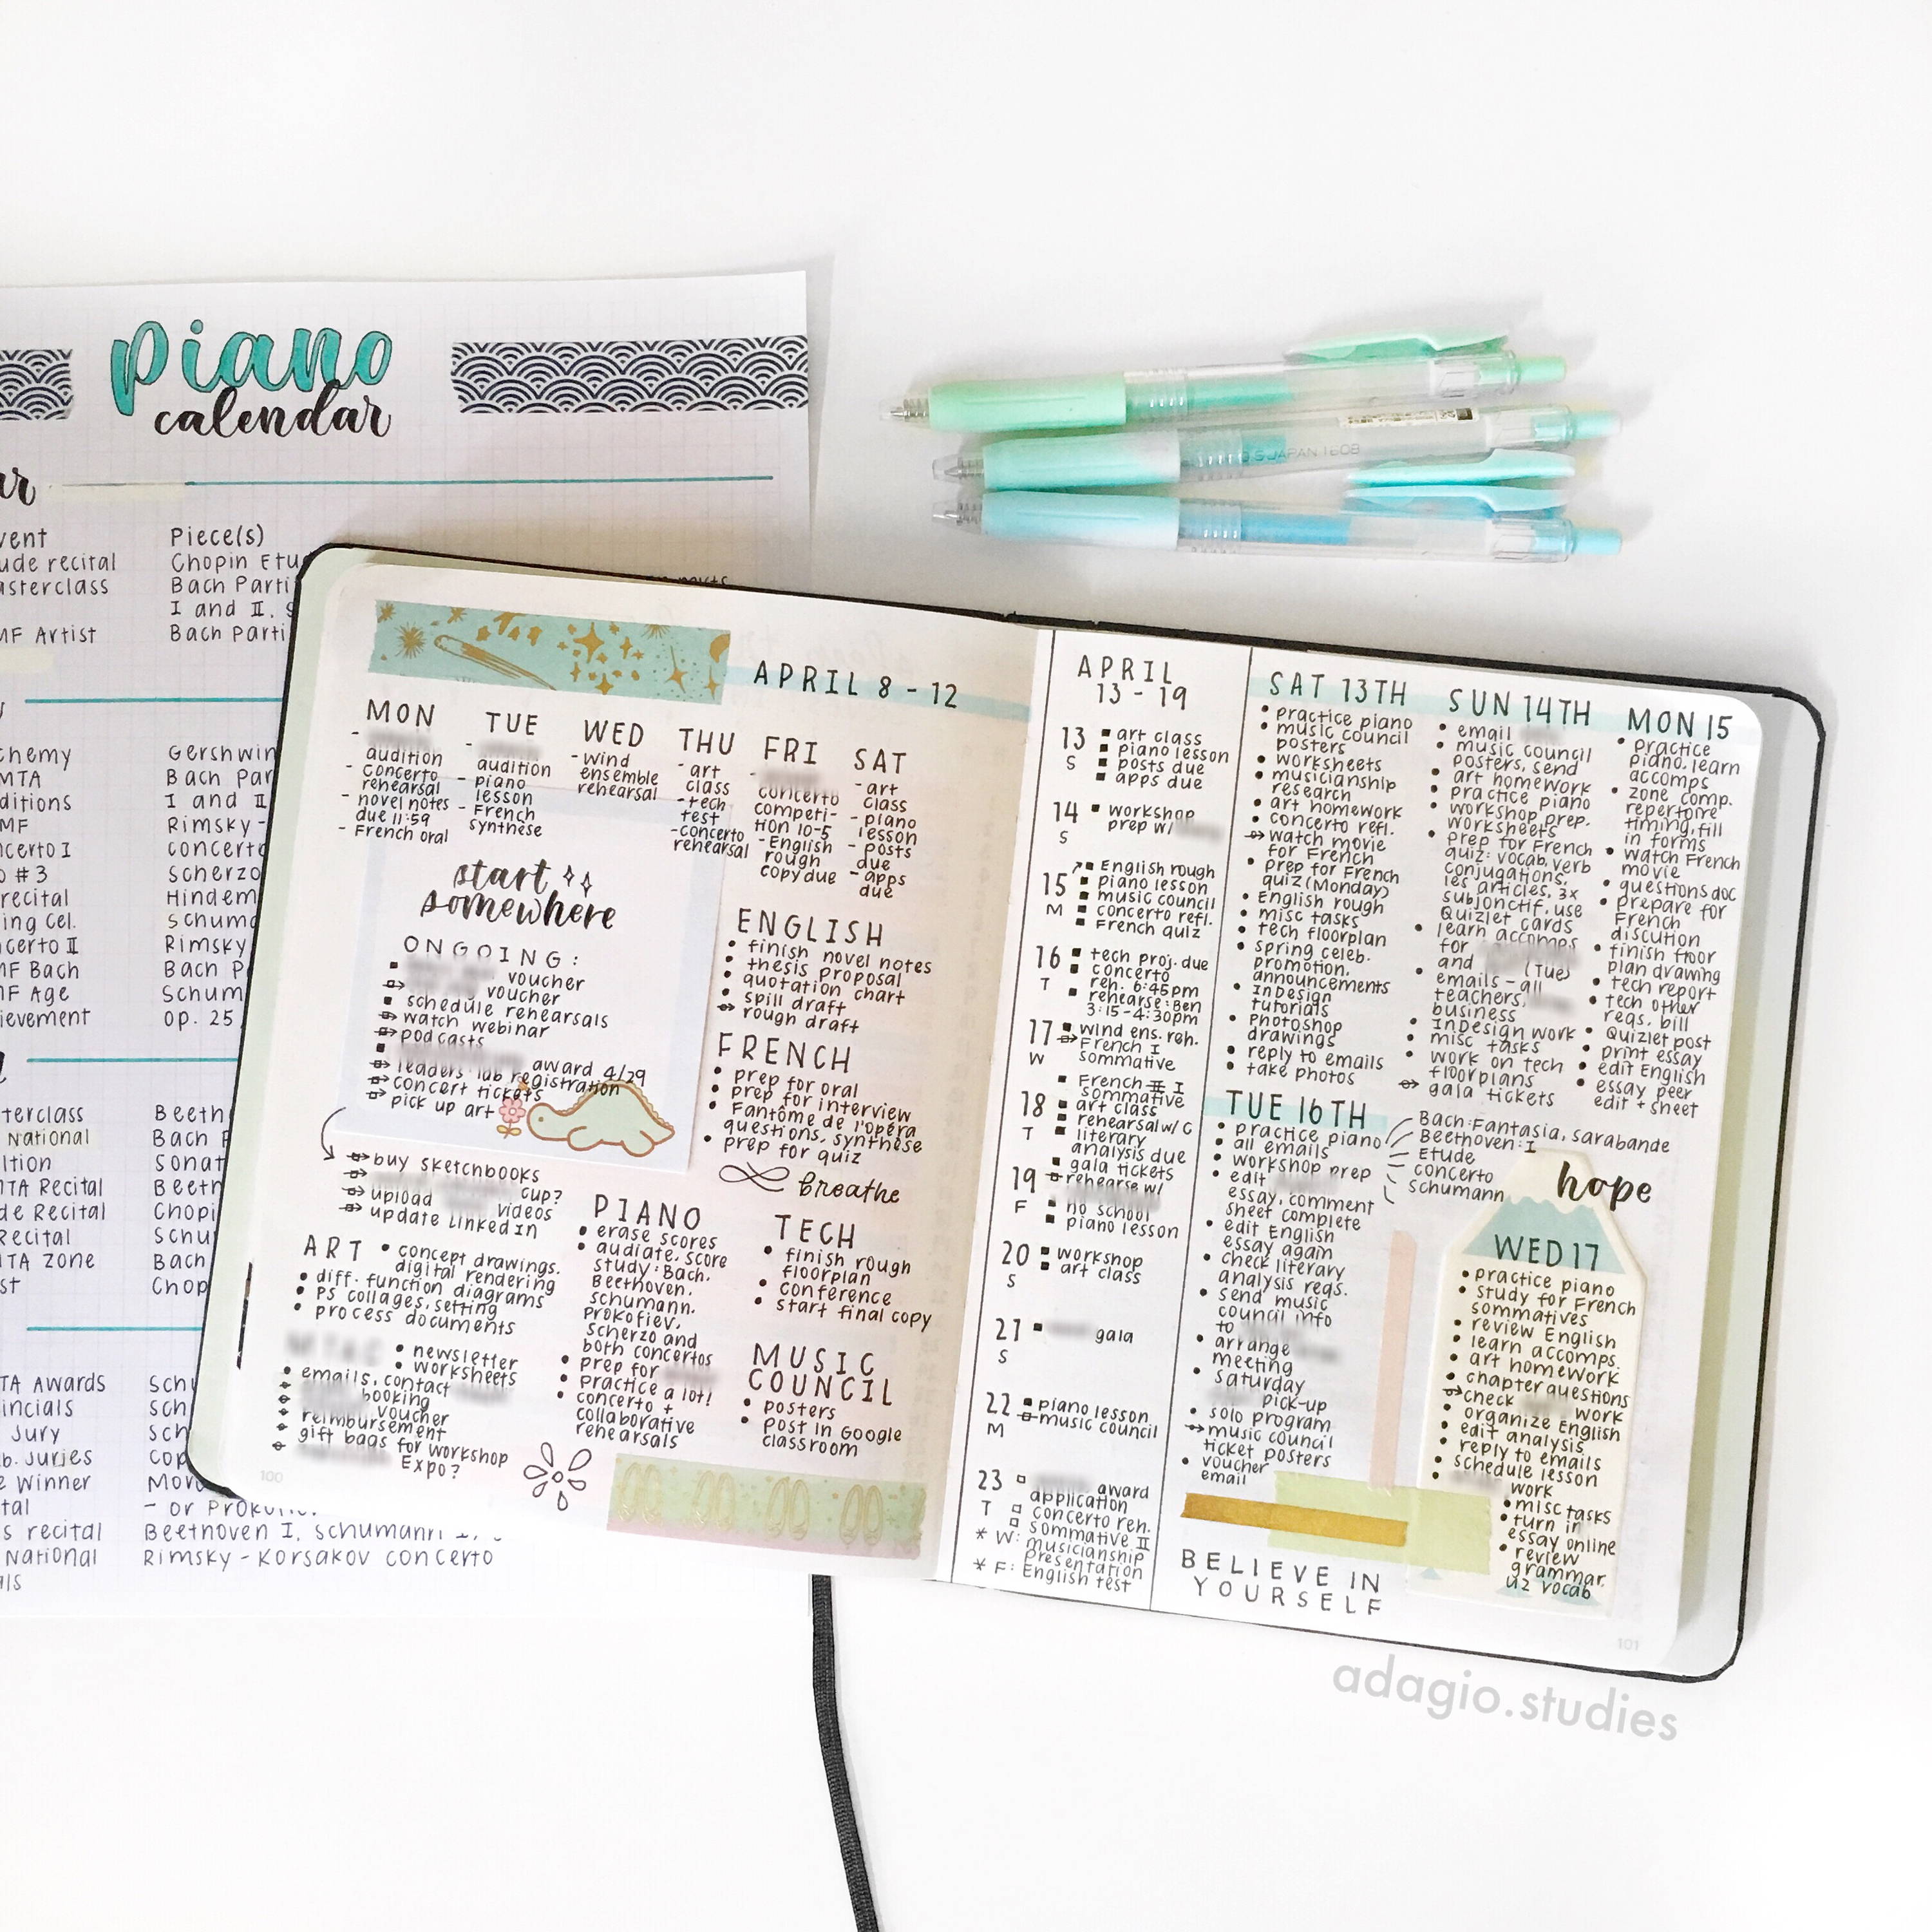 piano
calendar
ar
vent
Piece(s)
ude recital
Chopin Etu
asterclass
Bach Parti
I and II, S
MF Artist
Bach Parti
chemy
Gershwin
MTA
Bach Par
ditions
I and II
MF
Rimsky-
ncerto I
concerto
o #3
scherzo
recital
Hindem
ing Cel.
Schuma
certo II
Rimsky
MF Bach
Bach P
MF Age
Schum
ievement
op. 25
terclass
Beeth
National
Bach F
ition
Sonat
TA Recital
Beeth
de Recital
Chopi
Recital
Schu
TA Zone
Bach
st
Chop
TA Awards
Schu
incials
Sch
Jury
Sch
b. Juries
Cop
e Winner
Mov
tal
- or Prokof
s recital
Beethoven I, Schumann
National
Rimsky-Korsakov concerto
als
S JAPAN 1608
APRIL 8-12
MON
audition
- concerto
rehearsal
- novel notes
due 11:59
- French oral
TUE
audition
- piano
lesson
- French
synthèse
WED
- wind
ensemble
rehearsal
THU
- art
class
- tech
test
- concerto
rehearsal
FRI
concerto
competi-
tion 10-5
- English
rough
copy due
SAT
- art
class
- piano
lesson
- posts
due
- apps
due
start
somewhere
ONGOING:
voucher
voucher
schedule rehearsals
watch webinar
podcasts
award 4/29
leaders' lab registration
concert tickets
pick up art
buy sketchbooks
cup?
upload videos
update LinkedIn
ENGLISH
• finish novel notes
• thesis proposal
• quotation chart
• spill draft
rough draft
FRENCH
• prep for oral
• prep for interview
• Fantôme de l'opéra
questions, synthèse
• prep for quiz
breathe
ART
• concept drawings.
digital rendering
• diff. function diagrams
• PS collages, setting
• process documents
• newsletter
• worksheets
• emails, contact
booking
voucher
reimbursement
gift bags for workshop
Expo?
PIANO
• erase scores
• audiate, score
study: Bach.
Beethoven.
Schumann.
Prokofiev.
Scherzo and
both concertos
• prep for
• practice a lot!
• concerto +
collaborative
rehearsals
TECH
• finish rough
floorplan
• conference
• start final copy
MUSIC
COUNCIL
• posters
• post in Google
classroom
100
APRIL
13-19
13
S
art class
piano lesson
posts due
apps due
14
S
workshop
prep w/
15
M
English rough
piano lesson
music council
concerto refl.
French quiz
16
T
tech proj. due
concerto
reh. 6:45pm
rehearse: Ben
3:15-4:30pm
17
W
wind ens. reh.
French I
sommative
18
T
French II I
sommative
art class
rehearsal w/ C
literary
analysis due
gala tickets
19
F
rehearse w/
no school
piano lesson
20
S
workshop
art class
21
S
gala
22
M
piano lesson
music council
23
T
award
application
concerto reh.
sommative II
* W: musicianship
presentation
* F: English test
SAT 13TH
• practice piano
• music council
posters
• worksheets
• musicianship
research
• art homework
• concerto refl.
watch movie
for French
• prep for French
quiz (Monday)
• English rough
• misc tasks
• tech floorplan
• spring celeb.
promotion.
announcements
• InDesign
tutorials
• Photoshop
drawings
• reply to emails
• take photos
SUN 14TH
• email
• music council
posters, send
• art homework
• practice piano
• workshop prep.
worksheets
• prep for French
quiz: vocab, verb
conjugations,
les articles, 3x
subjonctif, use
Quizlet cards
• learn accomps
for
and (Tue)
• emails - all
teachers,
business
• InDesign work
• misc tasks
• work on tech
floorplans
gala tickets
MON 15
• practice
piano, learn
accomps
• zone comp.
repertoire
timing, fill
in forms
• watch French
movie
• questions doc
• prepare for
French
discution
• finish floor
plan drawing
• tech report
• tech other
reqs. bill
• Quizlet post
• print essay
• edit English
• essay peer
edit + sheet
TUE 16TH
• practice piano
Bach: Fantasia, sarabande
Beethoven: I
Etude
concerto
Schumann
• all emails
• workshop prep
• edit
essay, comment
sheet complete
• edit English
essay again
• check literary
analysis reqs.
• send music
council info
to
• arrange
meeting
• Saturday
pick-up
• solo program
music council
ticket posters
• voucher
email
BELIEVE IN
YOURSELF
hope
WED 17
• practice piano
• study for French
sommatives
• review English
• learn accomps.
• art homework
• chapter questions
check work
• organize English
• edit analysis
• reply to emails
• schedule lesson
work
• misc tasks
• turn in
essay online
• review
grammar,
U2 vocab
101
adagio.studies